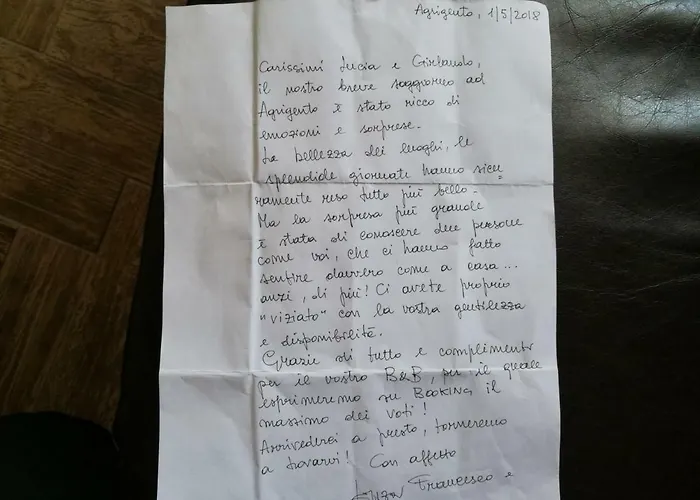 Agrigento, 1/5/2018
Carissimi Lucia e Girlando,
il nostro breve soggiorno ad
Agrigento è stato ricco di
emozioni e sorprese.
La bellezza dei luoghi, le
splendide giornate hanno sicu
ramente reso tutto più bello.
Ma la sorpresa più grande
è stata di conoscere due persone
come voi, che ci hanno fatto
sentire davvero come a casa...
anzi, di più! Ci avete proprio
"viziato" con la vostra gentilezza
e disponibilità.
Grazie di tutto e complimenti
per il vostro B&B, per il quale
esprimeremo su BOOKING il
massimo dei voti!
Arrivederci a presto, torneremo
a trovarvi! Con affetto
Francesco e